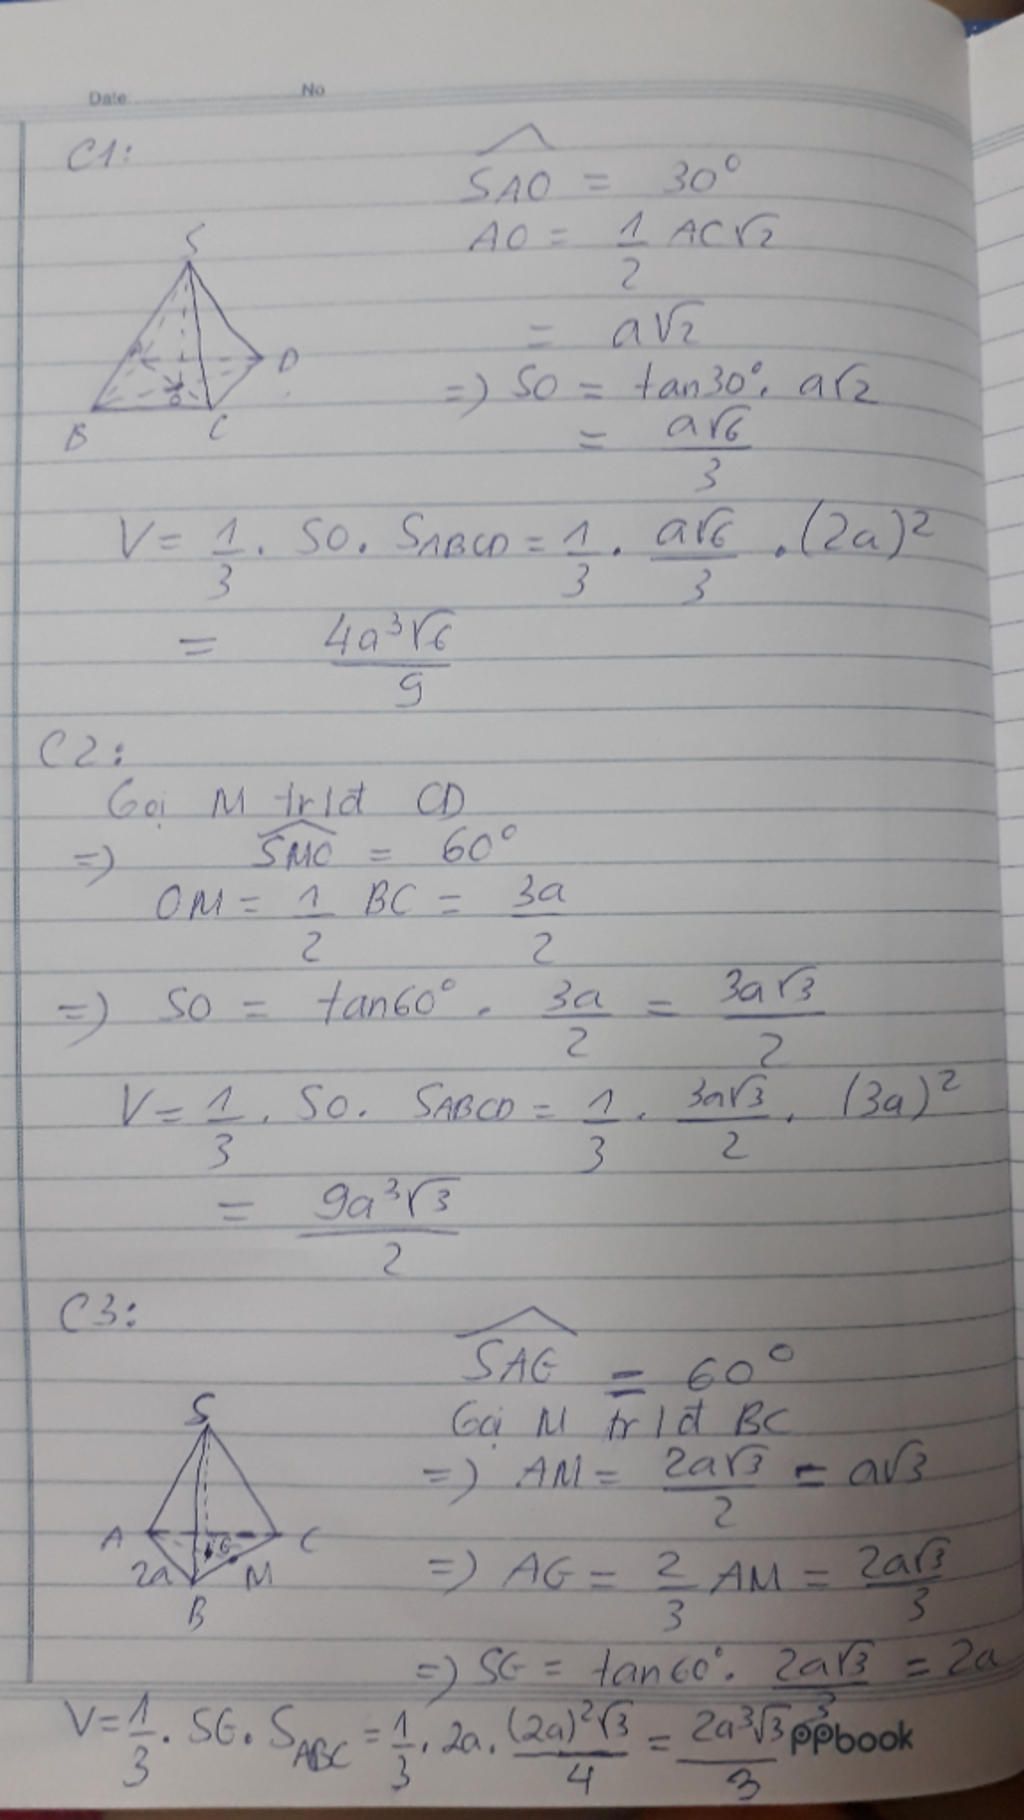 Date No
C1:
SAO = 30°
AO = 1/2 AC√2
= a√2
=) SO = tan30°. a√2
= a√6/3
S
D
B
C
O
V = 1/3 . SO. SABCD = 1/3 . a√6/3 .(2a)²
= 4a³√6/9
C2:
Gọi M tr/đ CD
=) SMO = 60°
OM = 1/2 BC = 3a/2
=) SO = tan60° . 3a/2 = 3a√3/2
V = 1/3 . SO. SABCD = 1/3 . 3a√3/2 . (3a)²
= 9a³√3/2
C3:
SAG = 60°
Gọi M tr/đ BC
=) AM = 2a√3/2 = a√3
=) AG = 2/3 AM = 2a√3/3
=) SG = tan60°. 2a√3/3 = 2a
S
A
G
C
2a
M
B
V = 1/3 . SG. SABC = 1/3 . 2a. (2a)²√3/4 = 2a³√3/3
ppbook